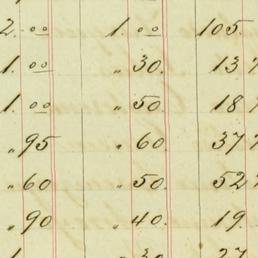 2.00 1.00 105.
1.00 " 30. 13
1.00 " 50. 18
" 95 " 60. 37
" 60 " 50. 52
" 90 " 40. 19.